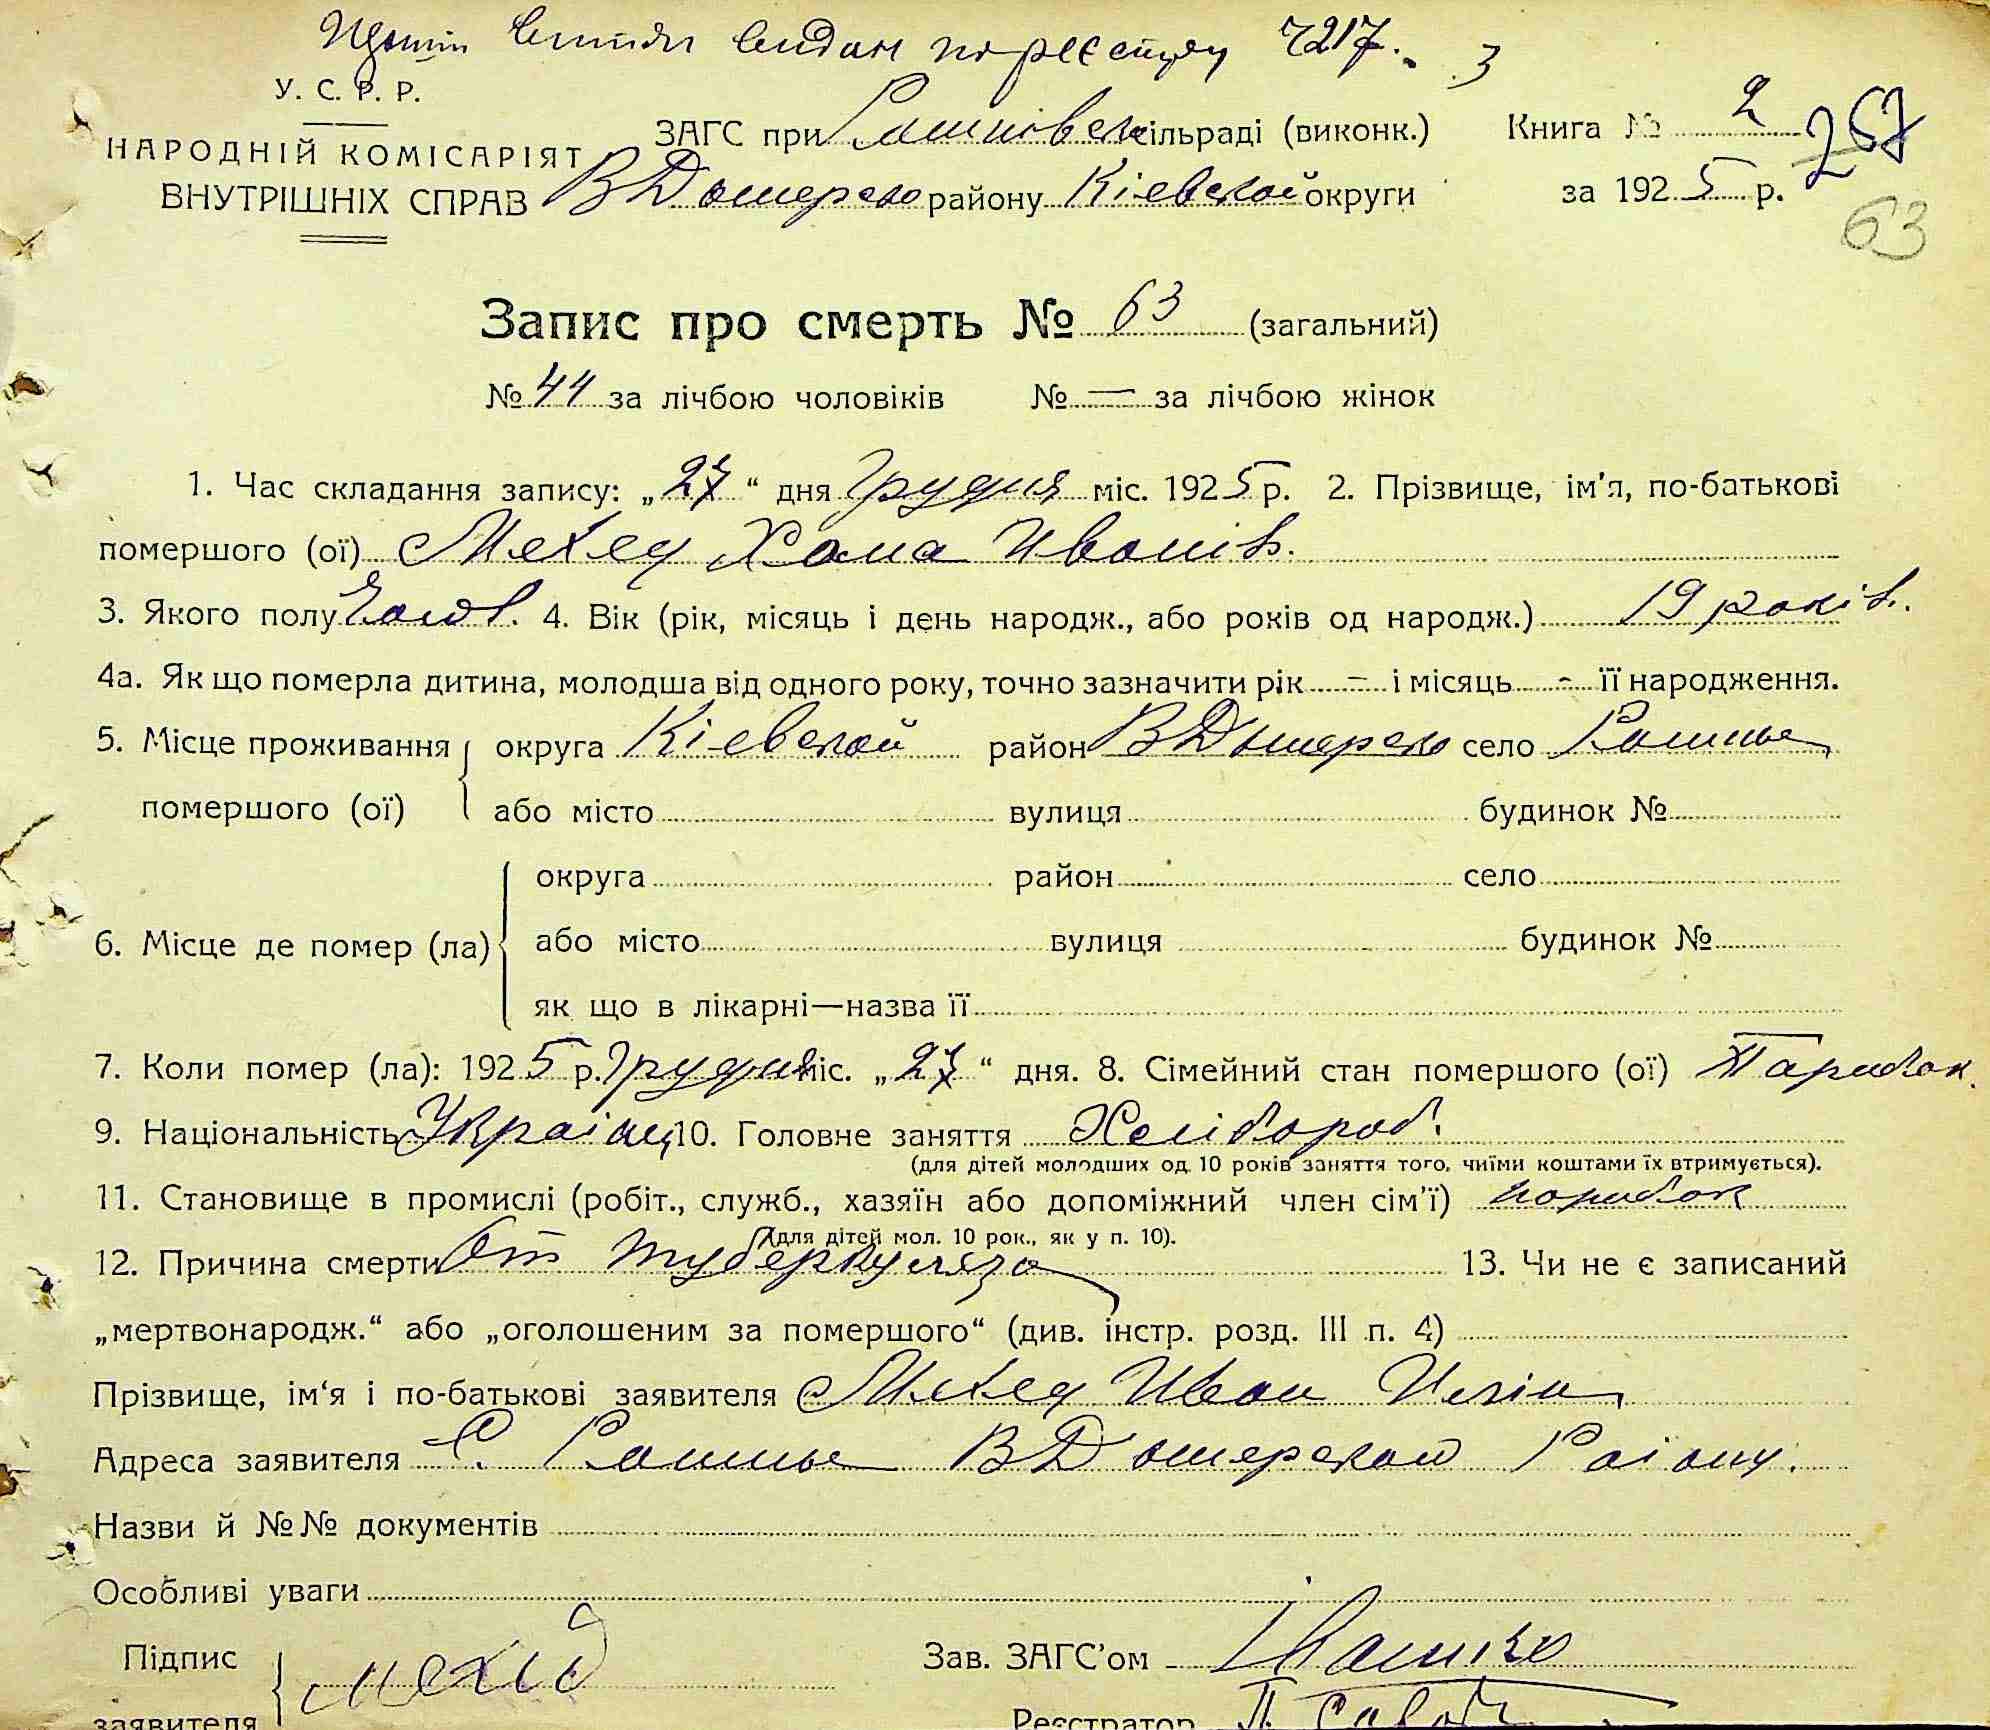 витяг видан по реєстру 7217. 3
У. С. Р. Р.
НАРОДНІЙ КОМІСАРІЯТ
ВНУТРІШНІХ СПРАВ
ЗАГС при сільраді (виконк.) Книга № 2 267
району Кіевской округи за 1925 р.
63
Запис про смерть № 63 (загальний)
№ 44 за лічбою чоловіків № — за лічбою жінок
1. Час складання запису: „27“ дня Грудня міс. 1925 р. 2. Прізвище, ім'я, по-батькові
помершого (ої) Мехед Хома Иванів.
3. Якого полу Чолов. 4. Вік (рік, місяць і день народж., або років од народж.) 19 років.
4а. Як що померла дитина, молодша від одного року, точно зазначити рік - і місяць - її народження.
5. Місце проживання округа Кіевской район село
помершого (ої) або місто вулиця будинок №
округа район село
6. Місце де помер (ла) або місто вулиця будинок №
як що в лікарні—назва її
7. Коли помер (ла): 1925 р. Грудня міс. „27“ дня. 8. Сімейний стан помершого (ої) Парубок.
9. Національність Украінец 10. Головне заняття Хлібороб.
(для дітей молодших од 10 років заняття того, чиїми коштами їх втримується).
11. Становище в промислі (робіт., служб., хазяїн або допоміжний член сім'ї) парубок
(для дітей мол. 10 рок., як у п. 10).
12. Причина смерти От туберкулеза 13. Чи не є записаний
„мертвонародж.“ або „оголошеним за помершого“ (див. інстр. розд. III п. 4)
Прізвище, ім'я і по-батькові заявителя Мехед Иван
Адреса заявителя С.
Назви й №№ документів
Особливі уваги
Підпис Мехид Зав. ЗАГС'ом
заявителя Реєстратор